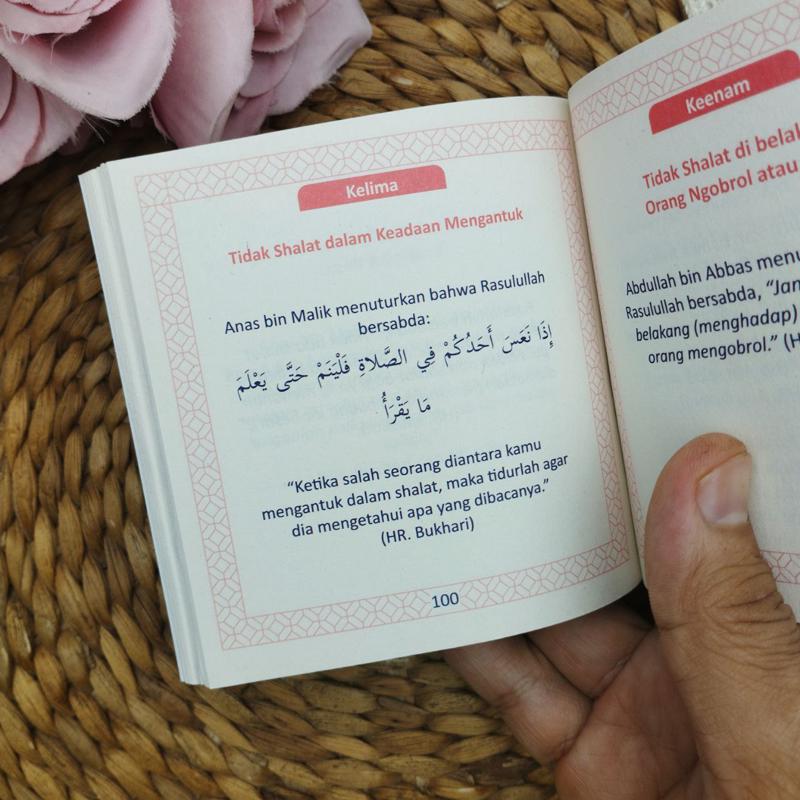 Kelima
Tidak Shalat dalam Keadaan Mengantuk
Anas bin Malik menuturkan bahwa Rasulullah
bersabda:
إِذَا نَعَسَ أَحَدُكُمْ فِي الصَّلَاةِ فَلْيَنَمْ حَتَّى يَعْلَمَ
مَا يَقْرَأُ
“Ketika salah seorang diantara kamu
mengantuk dalam shalat, maka tidurlah agar
dia mengetahui apa yang dibacanya.”
(HR. Bukhari)
100
Keenam
Tidak Shalat di
Orang Ngobrol atau
Abdullah bin Abbas
Rasulullah bersabda,
belakang (menghadap)
orang mengobrol.”